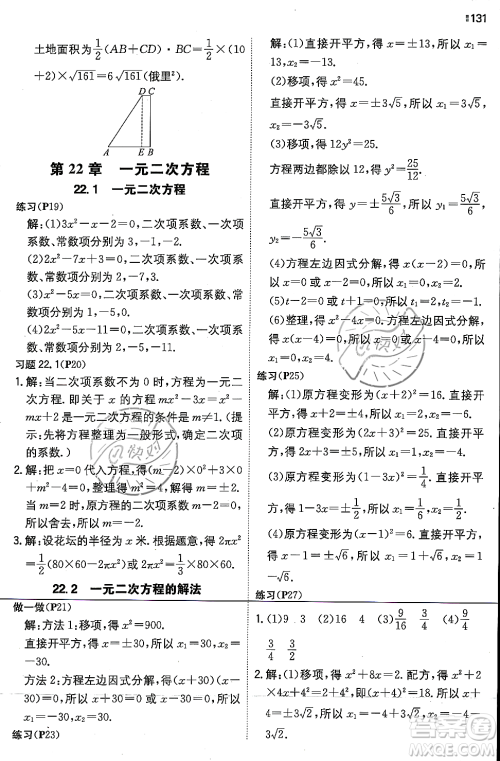 131
土地面积为1/2(AB+CD)·BC=1/2×(10
+2)×√161=6√161(俄里²)
D C
A E B
第 22 章 一元二次方程
22.1 一元二次方程
练习(P19)
解:(1)3x²-x-2=0,二次项系数、一次项系
数、常数项分别为 3,-1,-2.
(2)2x²-7x+3=0,二次项系数、一次项系
数、常数项分别为 2,-7,3.
(3)2x²-5x=0,二次项系数、一次项系数、
常数项分别为 2,-5,0.
(4)2x²-5x-11=0,二次项系数、一次项系
数、常数项分别为 2,-5,-11.
习题 22.1(P20)
1.解:当二次项系数不为 0 时,方程为一元二
次方程.即关于 x 的方程 mx²-3x=x²-
mx+2 是一元二次方程的条件是 m≠1.
(提示:先将方程整理为一般形式,确定二次项
的系数.)
2.解:把 x=0 代入方程,得(m-2)×0²+3×0
+m²-4=0.解这个方程,得 m=±2.
当 m=2 时,原方程的二次项系数 m-2=
0,所以舍去.所以 m=-2.
3.解:设花坛的半径为 x 米.根据题意,得 2πx²
=1/2×80×60.即 2πx²=1/2×80×60.
22.2 一元二次方程的解法
做一做(P21)
解:方法 1:移项,得 x²=900.
直接开平方,得 x=±30.所以 x₁=30,x₂
=-30.
方法 2:方程左边因式分解,得(x-30)(x+
30)=0.所以 x-30=0 或 x+30=0.所以
x₁=30,x₂=-30.
练习(P23)
解:(1)直接开平方,得 x=±13.所以 x₁=
13,x₂=-13.
(2)移项,得 x²=45.
直接开平方,得 x=±3√5.所以 x₁=3√5,x₂
=-3√5.
(3)移项,得 12y²=25.
方程两边都除以 12,得 y²=25/12.
直接开平方,得 y=±5√3/6.所以 y₁=5√3/6,y₂
=-5√3/6.
(4)方程左边因式分解,得 x(x+2)=0.所
以 x=0 或 x+2=0.所以 x₁=0,x₂=-2.
(5)t-2=0 或 t+1=0.所以 t₁=2,t₂=-1.
(6)整理,得 x²-4x=0.方程左边因式分解,
得 x(x-4)=0.所以 x=0 或 x-4=0.所
以 x₁=0,x₂=4.
练习(P25)
解:(1)原方程变形为(x+2)²=16.直接开
平方,得 x+2=±4.所以 x₁=2,x₂=-6.
(2)原方程变形为(x-1)²=18.直接开平
方,得 x-1=±3√2.所以 x₁=1+3√2,x₂=
1-3√2.
(3)原方程变形为(1-3x)²=1/4.直接开平
方,得 1-3x=±1/2.所以 x₁=1/6,x₂=1/2.
(4)原方程变形为(2x+3)²=5.直接开平
方,得 2x+3=±√5.所以 x₁=(-3+√5)/2,x₂=
(-3-√5)/2.
练习(P27)
1.(1)9 3 (2)16 4 (3)9/16 3/4 (4)9/16
3/4 3/2
2.解:(1)移项,得 x²+8x=2.配方,得 x²+2
×4x+4²=2+4²,(x+4)²=18.直接开平
方,得 x+4=±3√2.所以 x₁=-4+3√2,x₂
=-4-3√2.